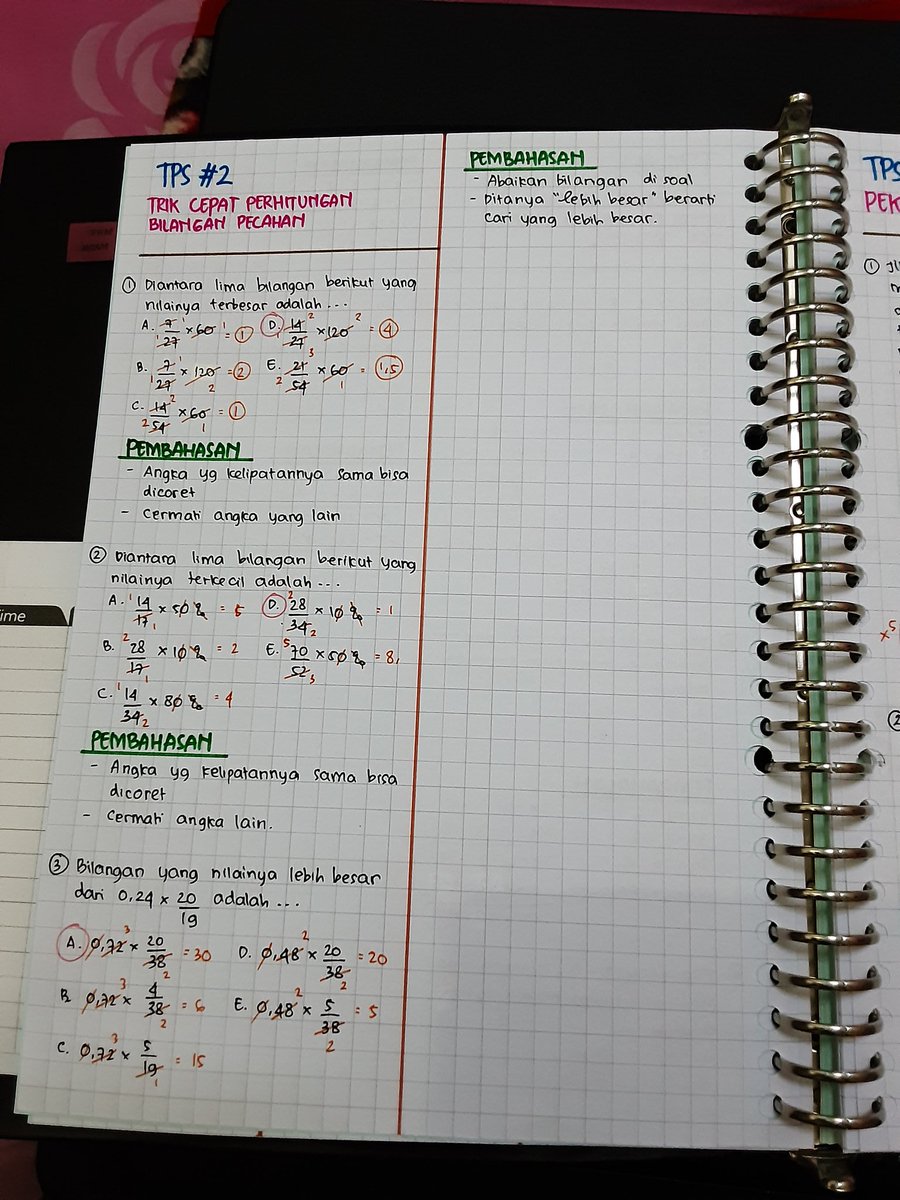 TPS #2
TRIK CEPAT PERHITUNGAN
BILANGAN PECAHAN
① Diantara lima bilangan berikut yang
nilainya terbesar adalah ...
A. 7/27 × 60 = 1
D. 14/27 × 120 = 4
B. 7/27 × 120 = 2
E. 21/54 × 60 = 1,5
C. 14/54 × 60 = 1
PEMBAHASAN
- Angka yg kelipatannya sama bisa
dicoret
- Cermati angka yang lain
② Diantara lima bilangan berikut yang
nilainya terkecil adalah ...
A. 14/17 × 50 % = 5
D. 28/34 × 10 % = 1
B. 28/17 × 10 % = 2
E. 70/52 × 50 % = 8,
C. 14/34 × 80 % = 4
PEMBAHASAN
- Angka yg kelipatannya sama bisa
dicoret
- Cermati angka lain.
③ Bilangan yang nilainya lebih besar
dari 0,24 × 20/19 adalah ...
A. 0,72 × 20/38 = 30
D. 0,48 × 20/38 = 20
B. 0,72 × 4/38 = 6
E. 0,48 × 5/38 = 5
C. 0,72 × 5/19 = 15
PEMBAHASAN
- Abaikan bilangan di soal
- Ditanya "lebih besar" berarti
cari yang lebih besar.
TPS
PEK
①
②